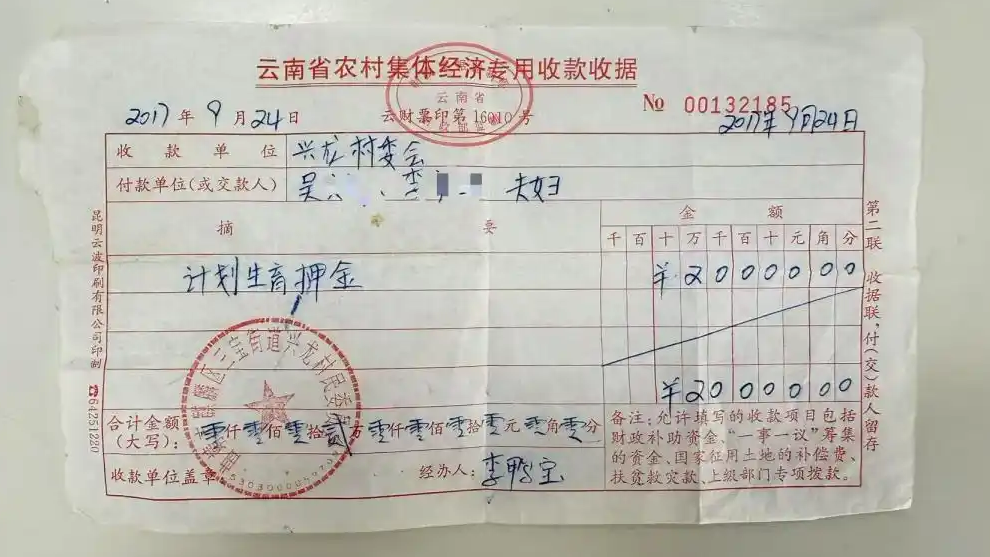 云南省农村集体经济专用收款收据
云南省
2017年9月24日
云财票印第16010号
№ 00132185
2017年9月24日
收款单位 兴龙村委会
付款单位(或交款人) 吴 、李 夫妇
摘要
金额
千百十万千百十元角分
计划生育押金
¥2000000
¥2000000
合计金额(大写): 零仟零佰零拾贰万零仟零佰零拾零元零角零分
收款单位盖章
经办人:
三宝街道兴龙村民委员
备注:允许填写的收款项目包括
财政补助资金、“一事一议”筹集
的资金、国家征用土地的补偿费、
扶贫救灾款、上级部门专项拨款。
第二联 收据联,付(交)款人留存
昆明云波印刷有限公司印制 ☎64251220